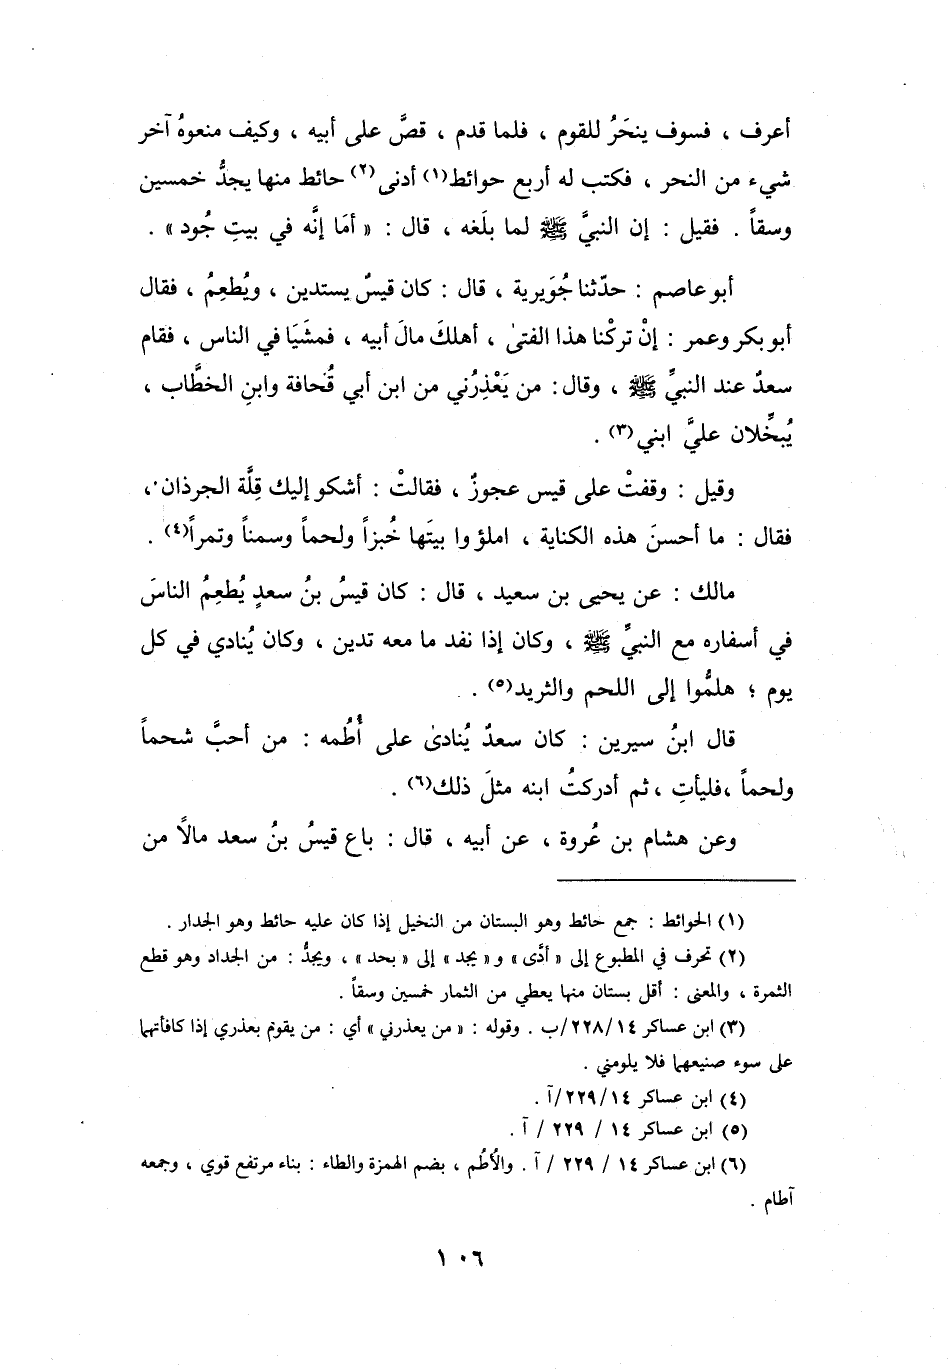 أعرف ، فسوف ينحَرُ للقوم ، فلما قدم ، قصَّ على أبيه ، وكيف منعوهُ آخر
شيء من النحر ، فكتب له أربع حوائط(١) أدنى(٢) حائط منها يجدُّ خمسين
وسقاً . فقيل : إن النبيَّ ﷺ لما بلَغه ، قال : « أمَا إنَّه في بيتِ جُود » .
أبو عاصم : حدّثنا جُوَيرية ، قال : كان قيسٌ يستدين ، ويُطعِمُ ، فقال
أبو بكر وعمر : إنْ تركْنا هذا الفتىٰ ، أهلكَ مالَ أبيه ، فمشَيَا في الناس ، فقام
سعدٌ عند النبيِّ ﷺ ، وقال : من يَعْذِرُني من ابن أبي قُحافة وابنِ الخطَّاب ،
يُبخِّلان عليَّ ابني(٣) .
وقيل : وقفتْ على قيس عجوزٌ ، فقالتْ : أشكو إليك قِلَّة الجرذان ،
فقال : ما أحسنَ هذه الكناية ، املؤوا بيتَها خُبزاً ولحماً وسمناً وتمراً(٤) .
مالك : عن يحيى بن سعيد ، قال : كان قيسُ بنُ سعدٍ يُطعِمُ الناسَ
في أسفاره مع النبيِّ ﷺ ، وكان إذا نفد ما معه تدين ، وكان يُنادي في كل
يوم ؛ هلمُّوا إلى اللحم والثريد(٥) .
قال ابنُ سيرين : كان سعدٌ يُنادىٰ على أُطُمه : من أحبَّ شحماً
ولحماً ، فليأتِ ، ثم أدركتُ ابنه مثلَ ذلك(٦) .
وعن هشام بن عُروة ، عن أبيه ، قال : باع قيسُ بنُ سعد مالاً من
(١) الحوائط : جمع حائط وهو البستان من النخيل إذا كان عليه حائط وهو الجدار .
(٢) تحرف في المطبوع إلى « أدَّى » و« يجد » إلى « بحد » ، ويجدُّ : من الجداد وهو قطع
الثمرة ، والمعنى : أقل بستان منها يعطي من الثمار خمسين وسقاً .
(٣) ابن عساكر ٢٢٨/١٤/ب . وقوله : « من يعذرني » أي : من يقوم بعذري إذا كافأتهما
على سوء صنيعهما فلا يلومني .
(٤) ابن عساكر ٢٢٩/١٤/آ .
(٥) ابن عساكر ١٤ / ٢٢٩ / آ .
(٦) ابن عساكر ١٤ / ٢٢٩ / آ . والأُطُم ، بضم الهمزة والطاء : بناء مرتفع قوي ، وجمعه
آطام .
١٠٦